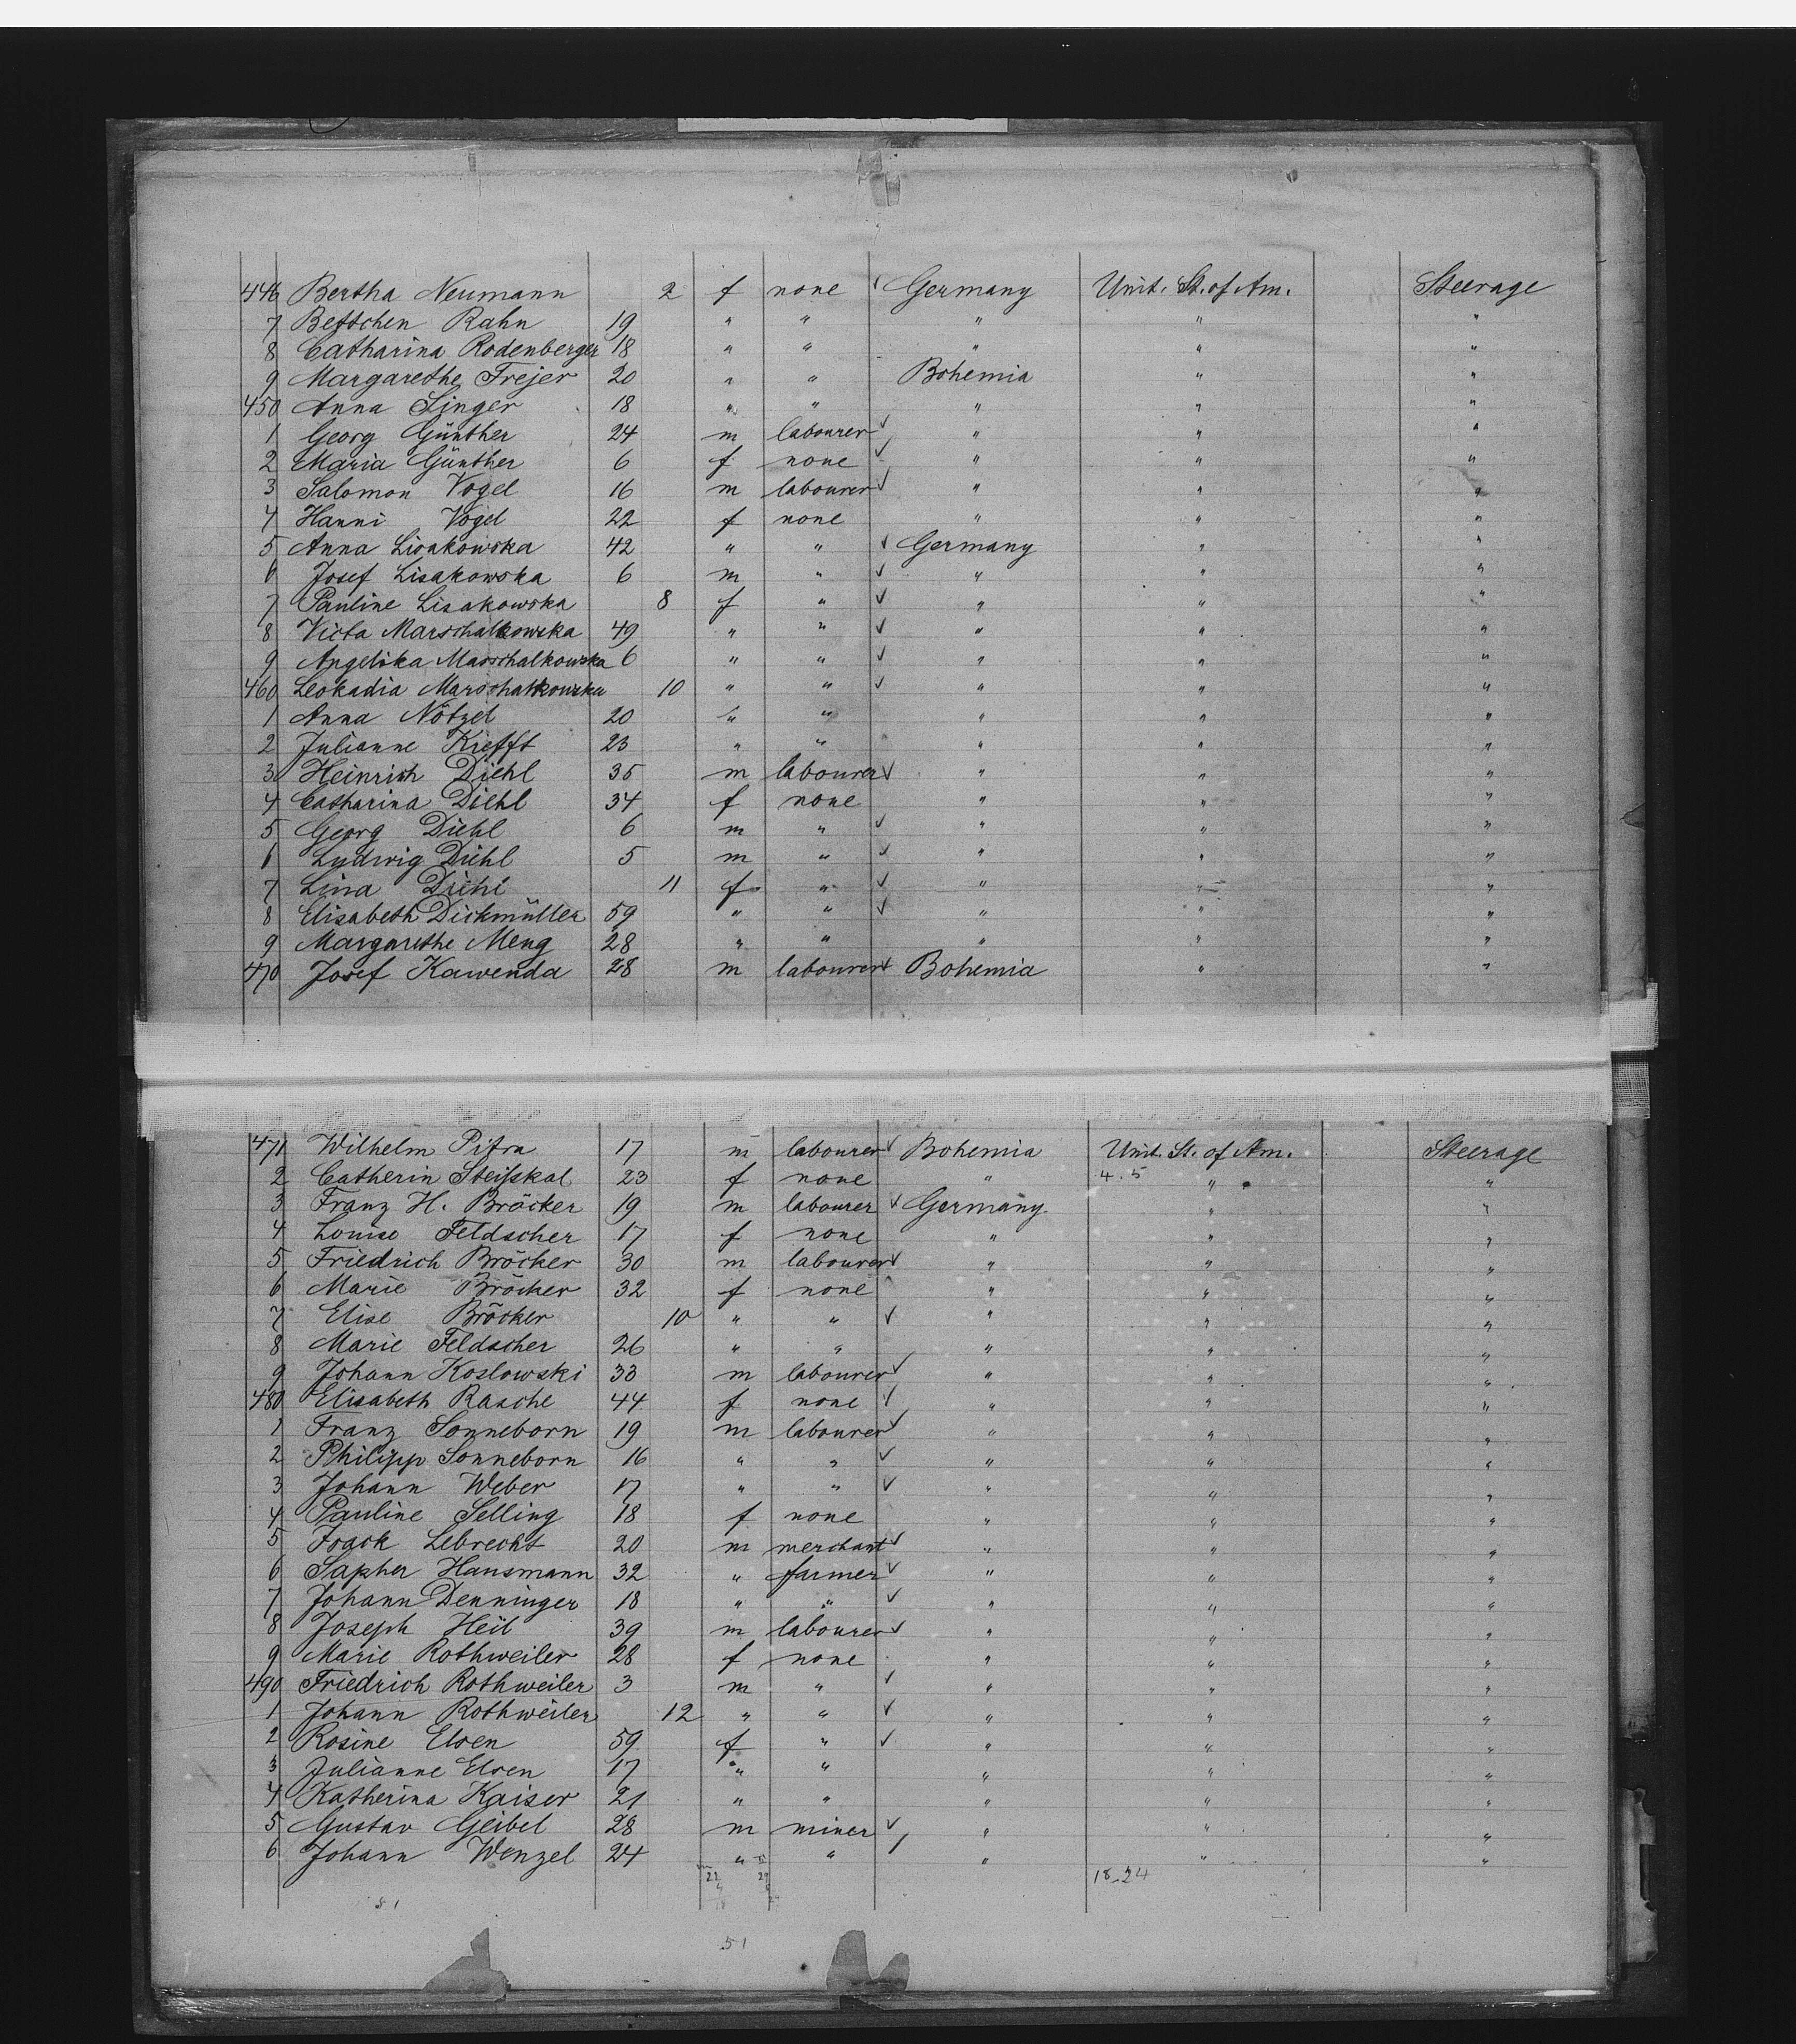 446 Bertha Neumann 2 f none ✓ Germany Unit. St. of Am. Steerage
7 Bettchen Rahn 19 " " " " "
8 Catharina Rodenberger 18 " " " " "
9 Margarethe Frejer 20 " " Bohemia " "
450 Anna Singer 18 " " " " "
1 Georg Günther 24 m labourer ✓ " " "
2 Maria Günther 6 f none ✓ " " "
3 Salomon Vogel 16 m labourer ✓ " " "
4 Hanni Vogel 22 f none " " "
5 Anna Lisakowska 42 " " ✓ Germany " "
6 Josef Lisakowska 6 m " ✓ " " "
7 Pauline Lisakowska 8 f " ✓ " " "
8 Victa Marschalkowska 49 " " ✓ " " "
9 Angelika Marschalkowska 6 " " ✓ " " "
460 Leokadia Marschalkowska 10 " " ✓ " " "
1 Anna Nötzel 20 " " " " "
2 Julianne Kiefft 23 " " " " "
3 Heinrich Diehl 35 m labourer ✓ " " "
4 Catharina Diehl 34 f none " " "
5 Georg Diehl 6 m " ✓ " " "
6 Ludwig Diehl 5 m " ✓ " " "
7 Lina Diehl 11 f " ✓ " " "
8 Elisabeth Dickmüller 59 " " ✓ " " "
9 Margarethe Meng 28 " " " " "
470 Josef Kawenda 28 m labourer ✓ Bohemia " "
471 Wilhelm Pitra 17 m labourer ✓ Bohemia Unit. St. of Am. Steerage
2 Catherin Steisskal 23 f none " 4.5 " "
3 Franz H. Bröcker 19 m labourer ✓ Germany " "
4 Louise Feldscher 17 f none " " "
5 Friedrich Bröcker 30 m labourer ✓ " " "
6 Marie Bröcker 32 f none " " "
7 Elise Bröcker 10 " " ✓ " " "
8 Marie Feldscher 26 " " " " "
9 Johann Koslowski 33 m labourer ✓ " " "
480 Elisabeth Rasche 44 f none ✓ " " "
1 Franz Sonneborn 19 m labourer ✓ " " "
2 Philipp Sonneborn 16 " " ✓ " " "
3 Johann Weber 17 " " ✓ " " "
4 Pauline Selling 18 f none " " "
5 Isack Lebrecht 20 m merchant ✓ " " "
6 Sapher Hausmann 32 " farmer ✓ " " "
7 Johann Denninger 18 " " ✓ " " "
8 Joseph Heil 39 m labourer ✓ " " "
9 Marie Rothweiler 28 f none " " "
490 Friedrich Rothweiler 3 m " ✓ " " "
1 Johann Rothweiler 12 " " ✓ " " "
2 Rosine Elsen 59 f " ✓ " " "
3 Julianne Elsen 17 " " " " "
4 Katherina Kaiser 21 " " " " "
5 Gustav Geibel 28 m miner ✓ " " "
6 Johann Wenzel 24 " " " " "
18-24
51